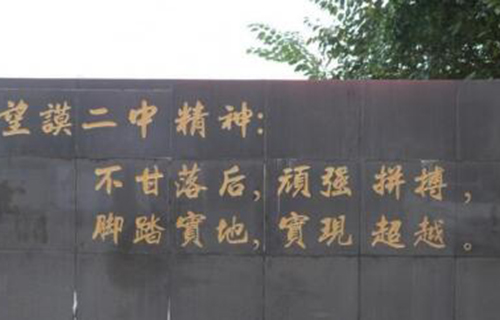 望謨二中精神:
不甘落后,頑强拼搏,
脚踏實地,實現超越。